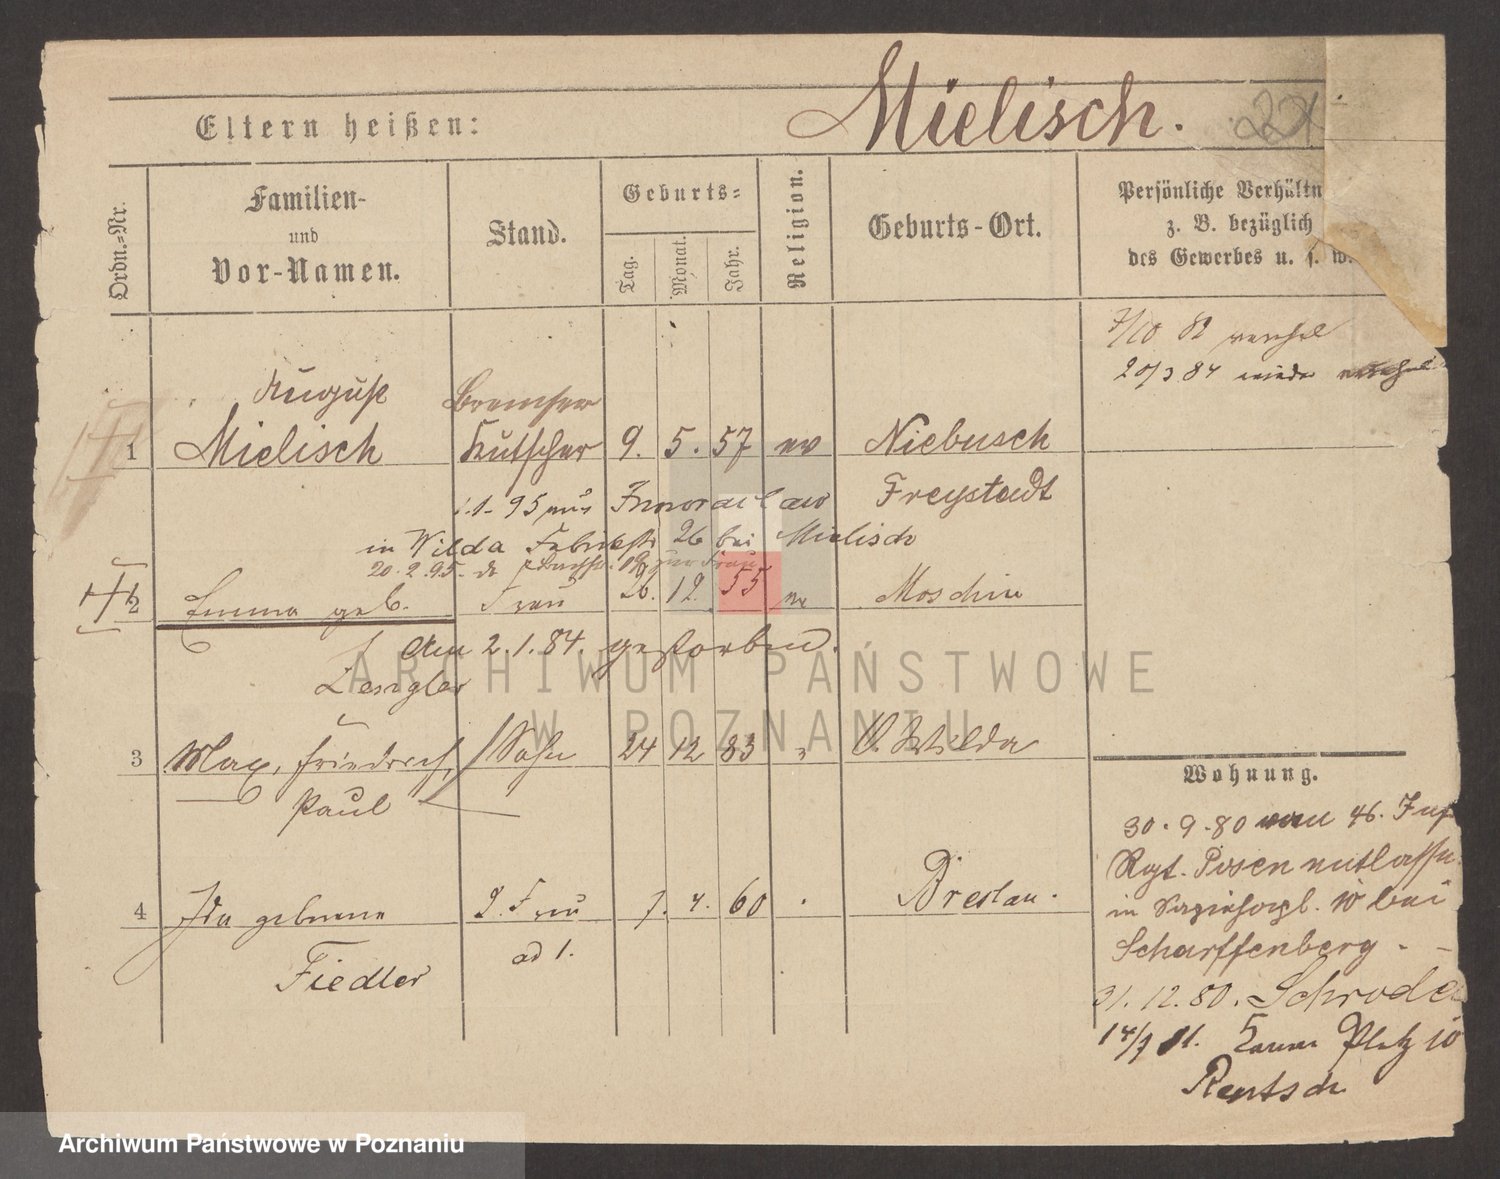 Mielisch.
Eltern heißen:
Ordn.=Nr.
Familien- und Vor-Namen.
Stand.
Geburts=
Tag.
Monat.
Jahr.
Religion.
Geburts-Ort.
Persönliche Verhältn
z. B. bezüglich
des Gewerbes u. s. w.
7/10 82
20/3 84 wieder
August Bremser
1 Mielisch Kutscher 9. 5. 57 ev Niebusch
Freystadt
95 aus Inowraclaw
in Wilda Fabrikstr 26 bei Mielisch
20. 2. 95.
2 Emma geb. Frau 26. 12. 55 ev Moschin
Am 2. 1. 84. gestorben.
3 Max, Friedrich, Sohn 24 12 83 " O. Wilda
Paul
4 Ida geborene 2. Frau 7. 4. 60 Breslau.
ad 1.
Fiedler
Wohnung.
30. 9. 80 vom 46. Inf
Rgt. Posen entlassen
in bei
Scharffenberg.
31. 12. 80. Schrode
14/7 81. Platz 10
Rentsch
ARCHIWUM PAŃSTWOWE
W POZNANIU
Archiwum Państwowe w Poznaniu